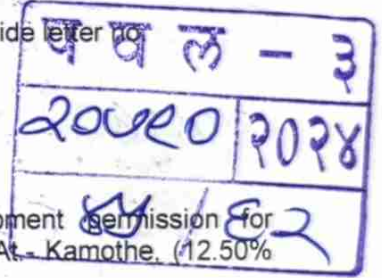 ide letter no.
प व ल - ३
२०२४
/ ६२
pment permission for
At.- Kamothe, (12.50%